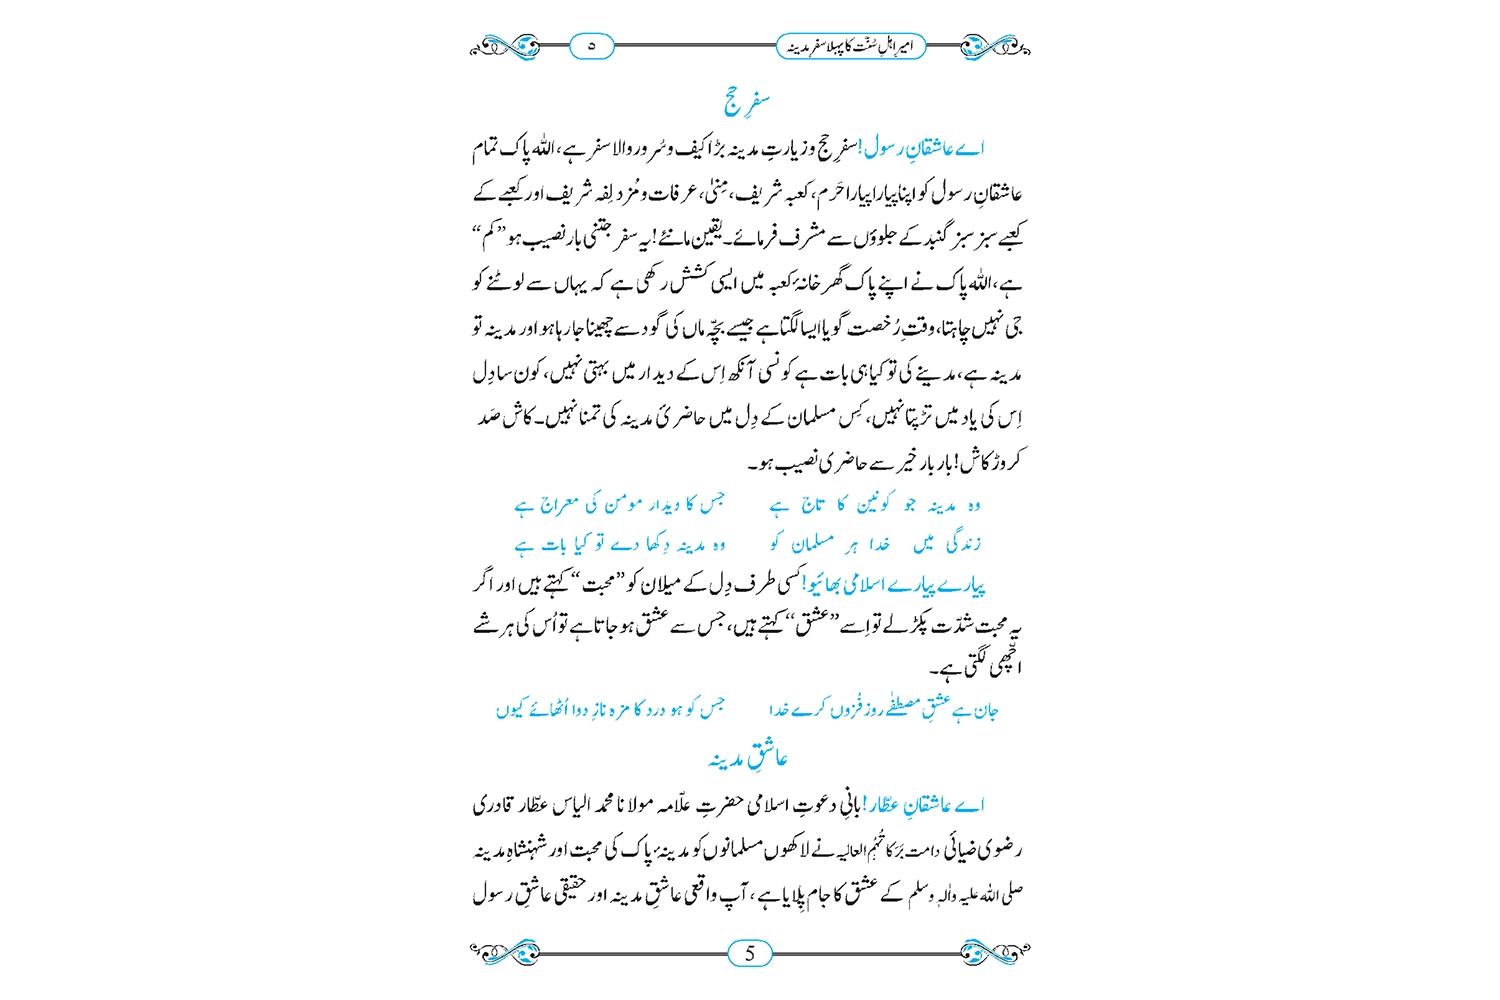 امیرِ اہلِ سنّت کا پہلا سفرِ مدینہ
۵
سفرِ حج
اے عاشقانِ رسول! سفرِ حج و زیارتِ مدینہ بڑا کیف و سُرور والا سفر ہے، اللہ پاک تمام
عاشقانِ رسول کو اپنا پیارا پیارا حَرَم، کعبہ شریف، مِنیٰ، عرفات و مُزدلِفہ شریف اور کعبے کے
کعبے سبز سبز گنبد کے جلوؤں سے مشرف فرمائے۔ یقین مانئے! یہ سفر جتنی بار نصیب ہو ”کم“
ہے، اللہ پاک نے اپنے پاک گھر خانۂ کعبہ میں ایسی کشش رکھی ہے کہ یہاں سے لوٹنے کو
جی نہیں چاہتا، وقتِ رُخصت گویا ایسا لگتا ہے جیسے بچّہ ماں کی گود سے چھینا جا رہا ہو اور مدینہ تو
مدینہ ہے، مدینے کی تو کیا ہی بات ہے کونسی آنکھ اِس کے دیدار میں بہتی نہیں، کون سا دِل
اِس کی یاد میں تڑپتا نہیں، کِس مسلمان کے دِل میں حاضریٔ مدینہ کی تمنا نہیں۔ کاش صَد
کروڑ کاش! بار بار خیر سے حاضری نصیب ہو۔
وہ مدینہ جو کونین کا تاج ہے جس کا دیدار مومن کی معراج ہے
زندگی میں خدا ہر مسلمان کو وہ مدینہ دِکھا دے تو کیا بات ہے
پیارے پیارے اسلامی بھائیو! کسی طرف دِل کے میلان کو ”محبت“ کہتے ہیں اور اگر
یہ محبت شدّت پکڑ لے تو اِسے ”عشق“ کہتے ہیں، جس سے عشق ہو جاتا ہے تو اُس کی ہر شے
اچّھی لگتی ہے۔
جان ہے عشقِ مصطفےٰ روز فُزوں کرے خدا جس کو ہو درد کا مزہ نازِ دوا اُٹھائے کیوں
عاشقِ مدینہ
اے عاشقانِ عطّار! بانیِ دعوتِ اسلامی حضرتِ علّامہ مولانا محمد الیاس عطّار قادری
رضوی ضیائی دامت بَرَکاتُہُم العالیہ نے لاکھوں مسلمانوں کو مدینۂ پاک کی محبت اور شہنشاہِ مدینہ
صلی اللہ علیہ واٰلہٖ وسلم کے عشق کا جام پِلایا ہے، آپ واقعی عاشقِ مدینہ اور حقیقی عاشقِ رسول
5